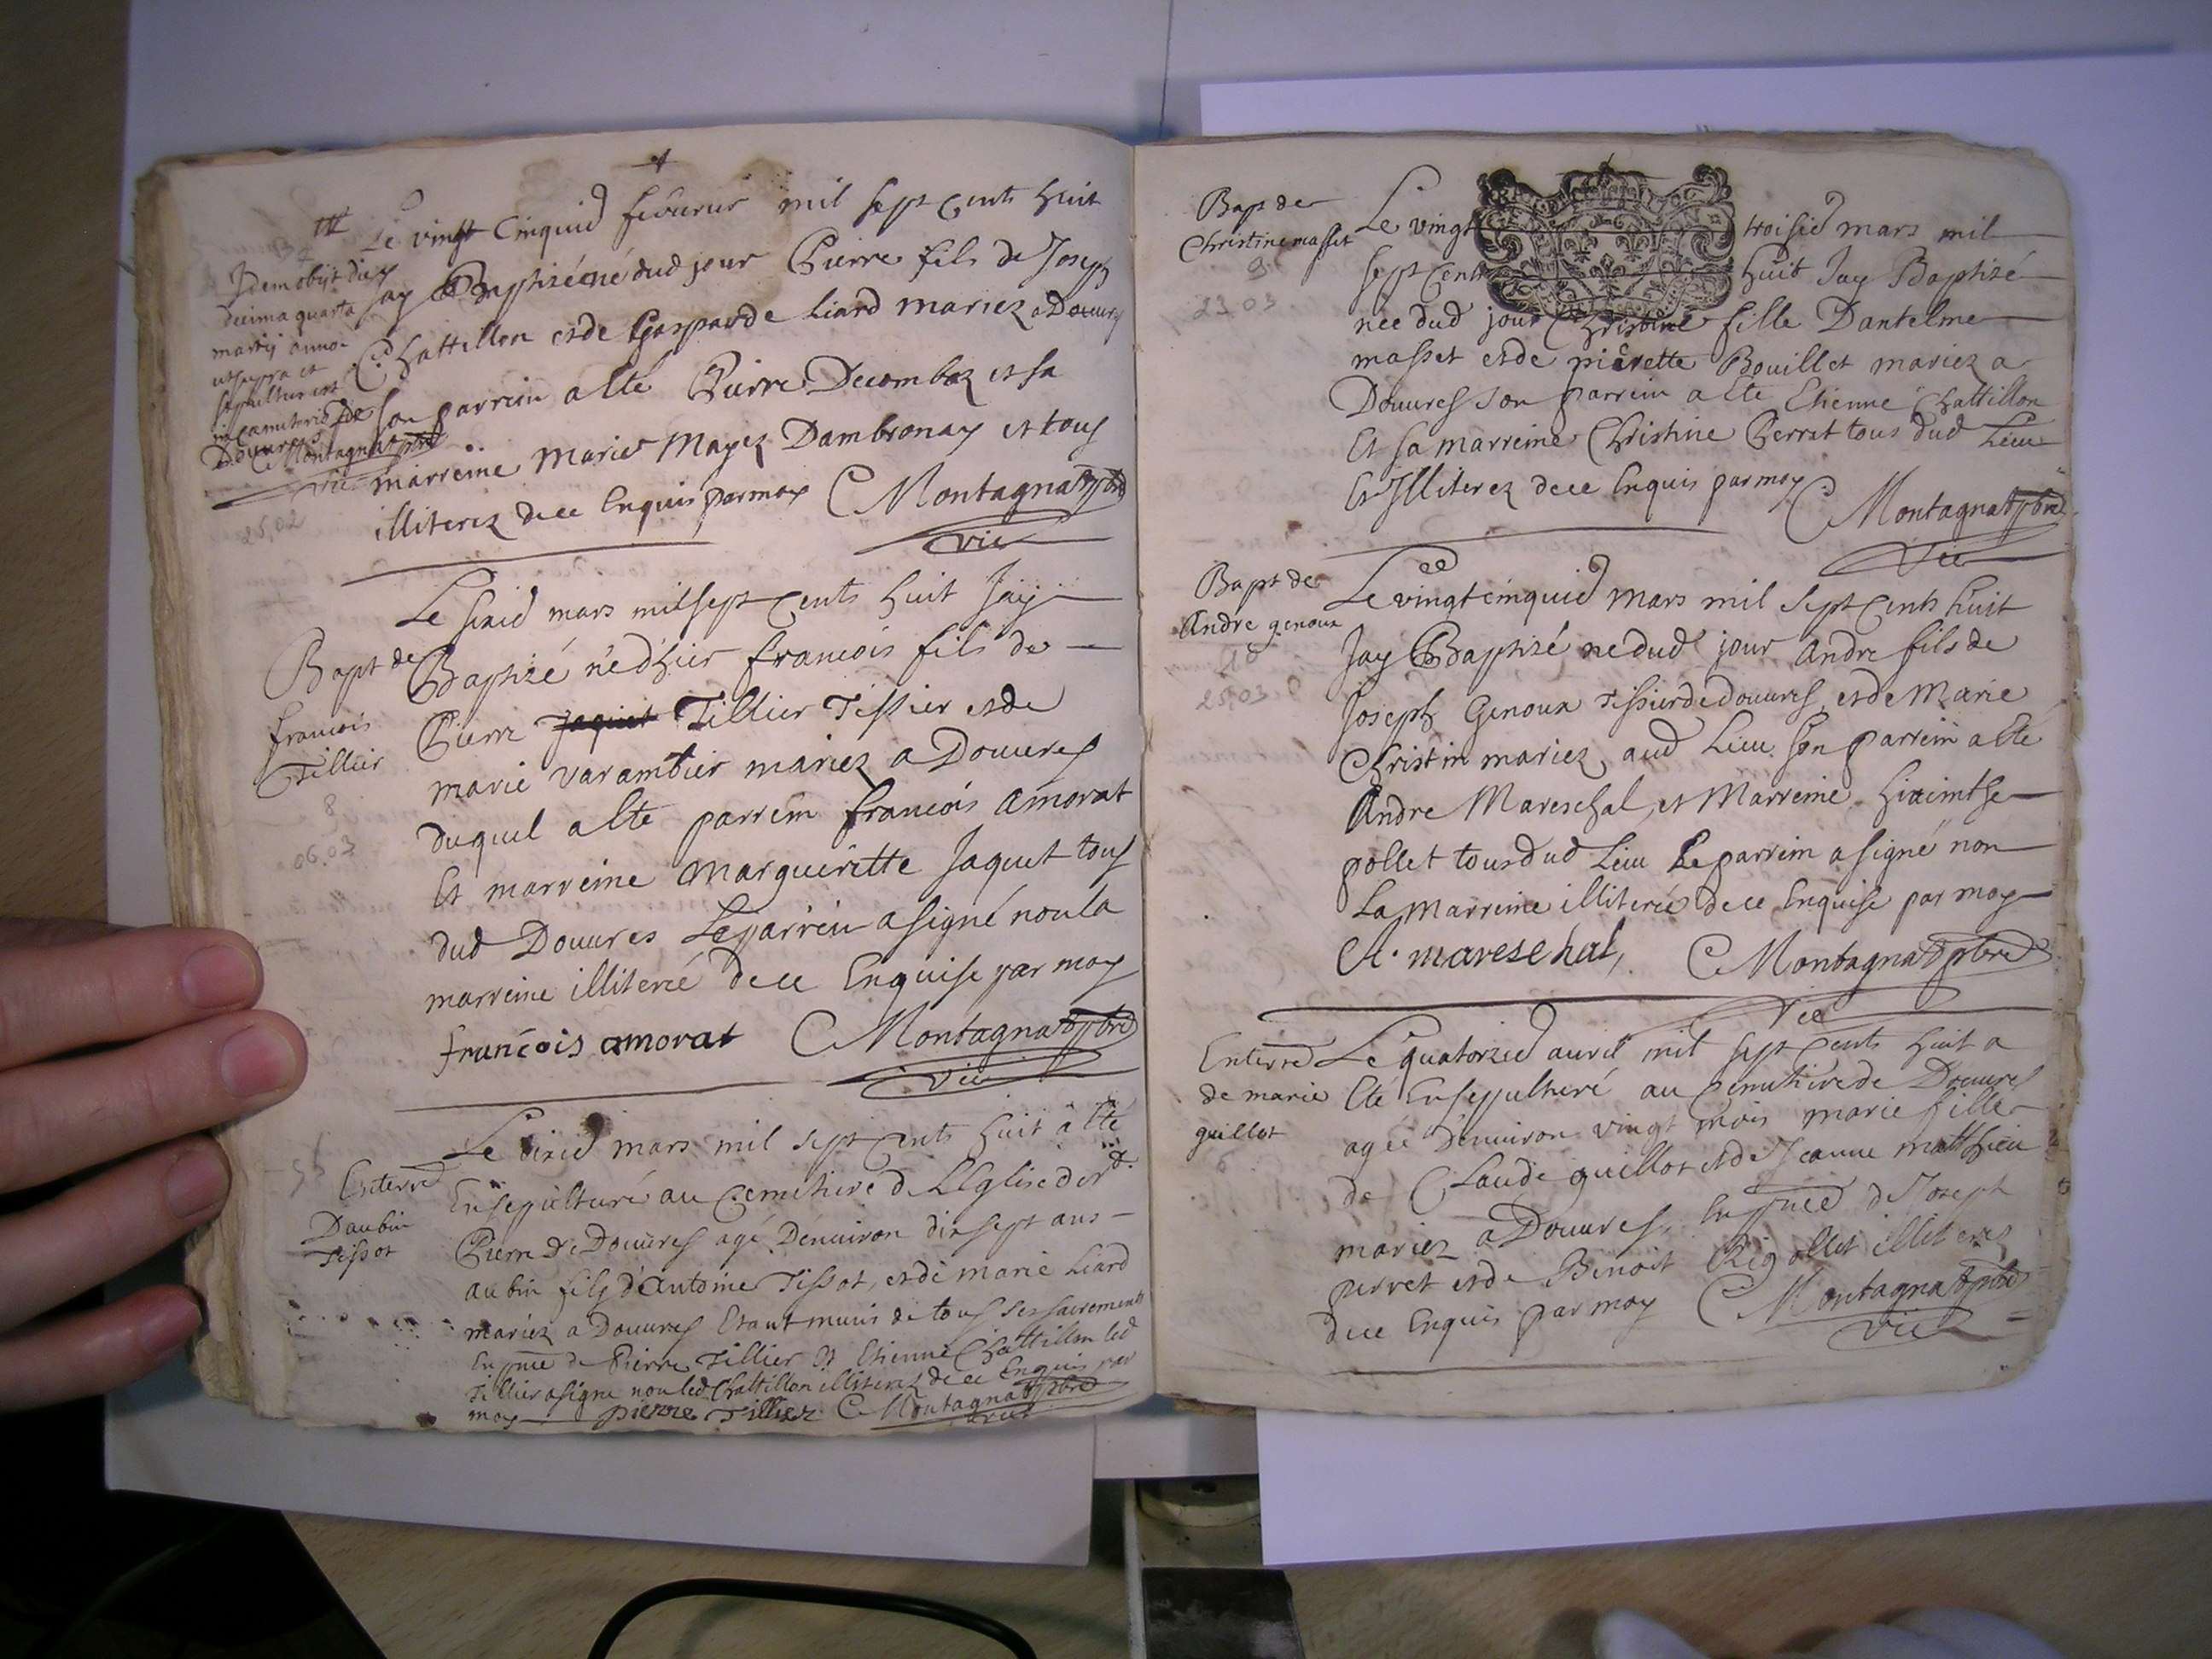 Le vingt Cinquie feburier mil sept Cents huit
Jay Baptizé né dud jour Pierre fils de Joseph
Chattillon et de Gasparde Liard mariez a Douures
son parrein a Eté Pierre Decombaz et sa
marreine Marie Mayez Dambronay et tous
illiterez de ce Enquis par moy C Montagnat pbre
vic
Idem obijt die
decima quarta
martij anno
ut supra et
sepultus est
in cemiterio de
Douures
C Montagnat pbre
vic
25.02
Le sixie mars mil sept Cents huit Jay
Baptizé né d'hier francois fils de
Pierre Tillier Tissier et de
marie varambier mariez a Douures
duquel a Eté parrein francois Amorat
Et marreine Marguerette Jaquet tous
dud Douures Le parrein a signé non la
marreine illiterée de ce Enquise par moy
françois amorat C Montagnat pbre
vic
Bapt de
francois
Tillier
8
06.03
Le sixie mars mil sept Cents huit a Eté
Ensepulturé au Cemitiere d L'Eglise de st
Pierre de Douures agé Denuiron dix sept ans
aubin fils d'Antoine Tissot, et de marie Liard
mariez a Douures Etant muni de tous ses sacrements
En pnce de Pierre Tillier Et Etienne Chattillon led
Tillier a signé non led Chattillon illiterez de ce Enquis par
moy pierre Tillier C Montagnat pbre
vic
5
Enterre
Daubin
Tissot
Bap de
Christine masset
9
23 03
Le vingt troisie mars mil
sept Cents huit Jay Baptizé
née dud jour Christine fille Dantelme
masset et de pierrette Bouillet mariez a
Douures son parrein a Eté Etienne Chattillon
Et sa marreine Christine Perrat tous dud Lieu
Et Illiterez de ce Enquis par moy
C Montagnat pbre
vic
Bapt de
Andre genoux
10
25.03
Le vingt cinquie mars mil sept Cents huit
Jay Baptizé né dud jour andre fils de
Joseph Genoux Tissier de douures, et de Marie
Christin mariez aud Lieu son parrein a Eté
Andre Mareschal, et Marreine hiacinthe
pollet tous dud Lieu Le parrein a signé non
La Marreine illiterée de ce Enquise par moy
A. mareschal, C Montagnat pbre
vic
Enterre
de marie
guillot
6
Le quatorzie auril mil sept Cents huit a
Eté Ensepulturé au Cemitiere de Douures
agée Denuiron vingt mois marie fille
de Claude guillot et de Jeanne matthieu
mariez a Douures, En pnce de Joseph
perret et de Benoit Rigollet illiterez
de ce Enquis par moy C Montagnat pbre
vic